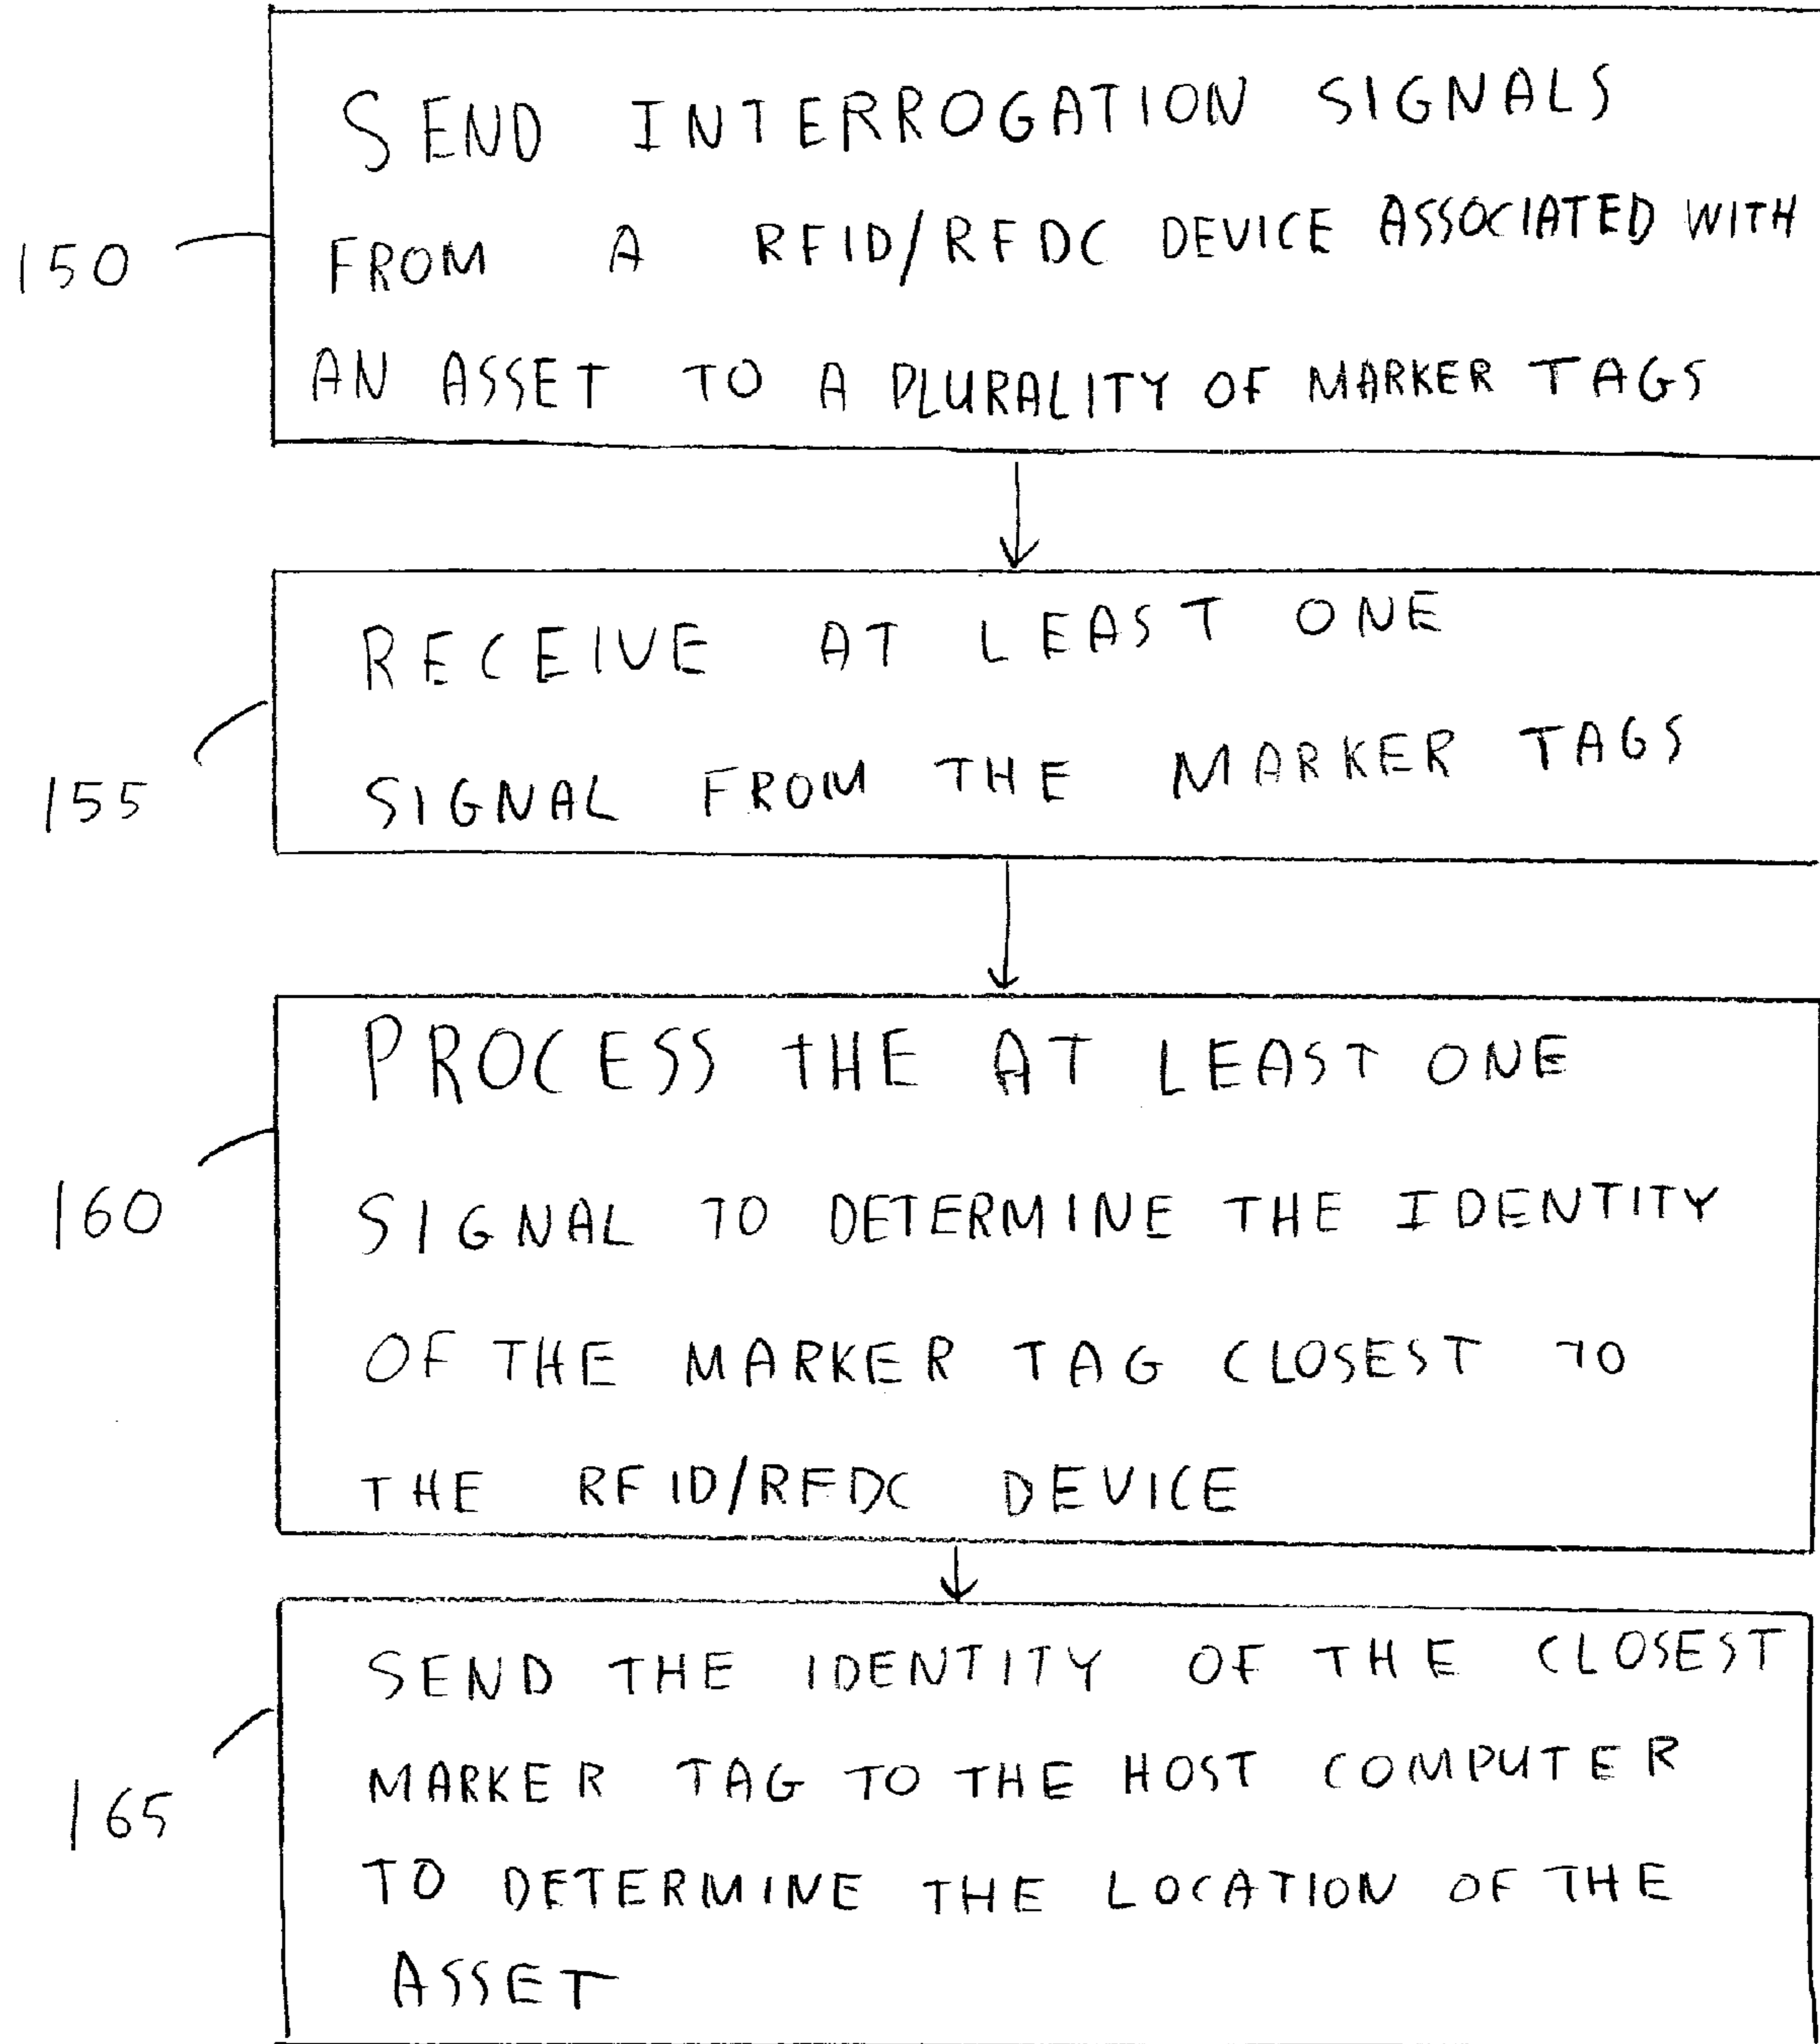 SEND INTERROGATION SIGNALS
150 FROM A RFID/RFDC DEVICE ASSOCIATED WITH
AN ASSET TO A PLURALITY OF MARKER TAGS
RECEIVE AT LEAST ONE
155 SIGNAL FROM THE MARKER TAGS
PROCESS THE AT LEAST ONE
160 SIGNAL TO DETERMINE THE IDENTITY
OF THE MARKER TAG CLOSEST TO
THE RFID/RFDC DEVICE
SEND THE IDENTITY OF THE CLOSEST
MARKER TAG TO THE HOST COMPUTER
165 TO DETERMINE THE LOCATION OF THE
ASSET